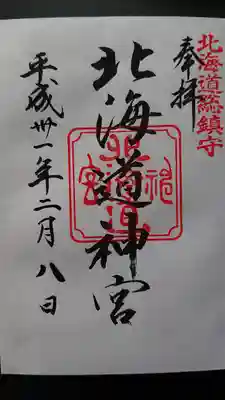 北海道総鎮守
奉拝
北海道神宮
平成卅一年二月八日